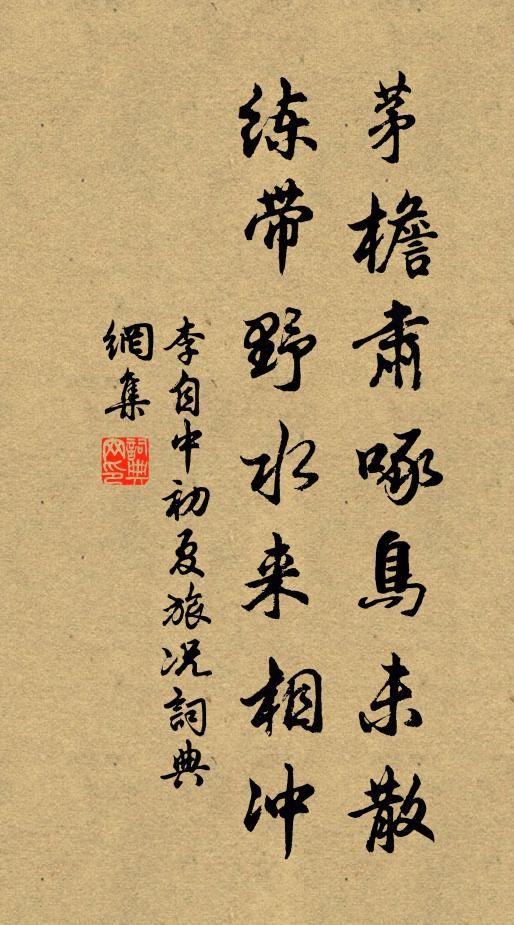 茅檐肃啄鳥未散
练带野水来相冲
李自中初夏旅况詞典
網集
詞典
网印